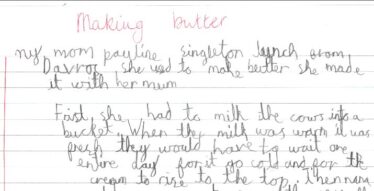 Making butter
my mom pauline singleton lynch from
Davros she used to make butter she made
it with her mum
First she had to milk the cows into a
bucket. When they milk was warm it was
fresh they would have to wait one
entire day for it go cold and for the
cream to rise to the top. Then nana